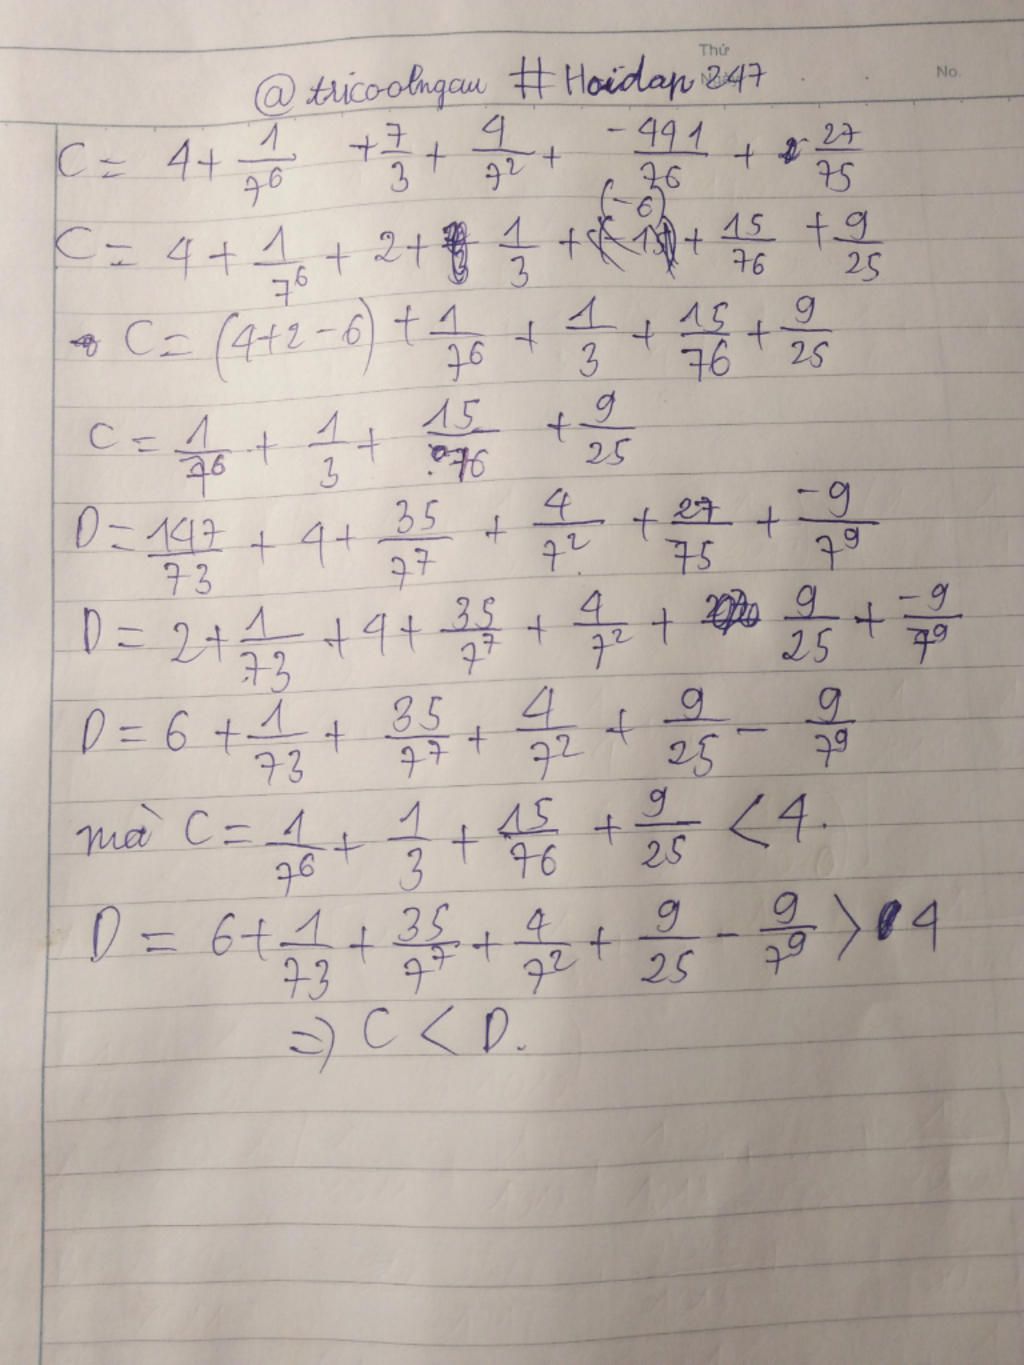 Thứ
Ngày
No.
@tricoolngau #Hoidap247
C = 4 + 1/7^6 + 7/3 + 4/7^2 + -491/76 + 27/75
C = 4 + 1/7^6 + 2 + 1/3 + (-6) + 15/76 + 9/25
C = (4+2-6) + 1/7^6 + 1/3 + 15/76 + 9/25
C = 1/7^6 + 1/3 + 15/76 + 9/25
D = 147/73 + 4 + 35/7^7 + 4/7^2 + 27/75 + -9/7^9
D = 2 + 1/73 + 4 + 35/7^7 + 4/7^2 + 9/25 + -9/7^9
D = 6 + 1/73 + 35/7^7 + 4/7^2 + 9/25 - 9/7^9
mà C = 1/7^6 + 1/3 + 15/76 + 9/25 < 4.
D = 6 + 1/73 + 35/7^7 + 4/7^2 + 9/25 - 9/7^9 > 4
=> C < D.